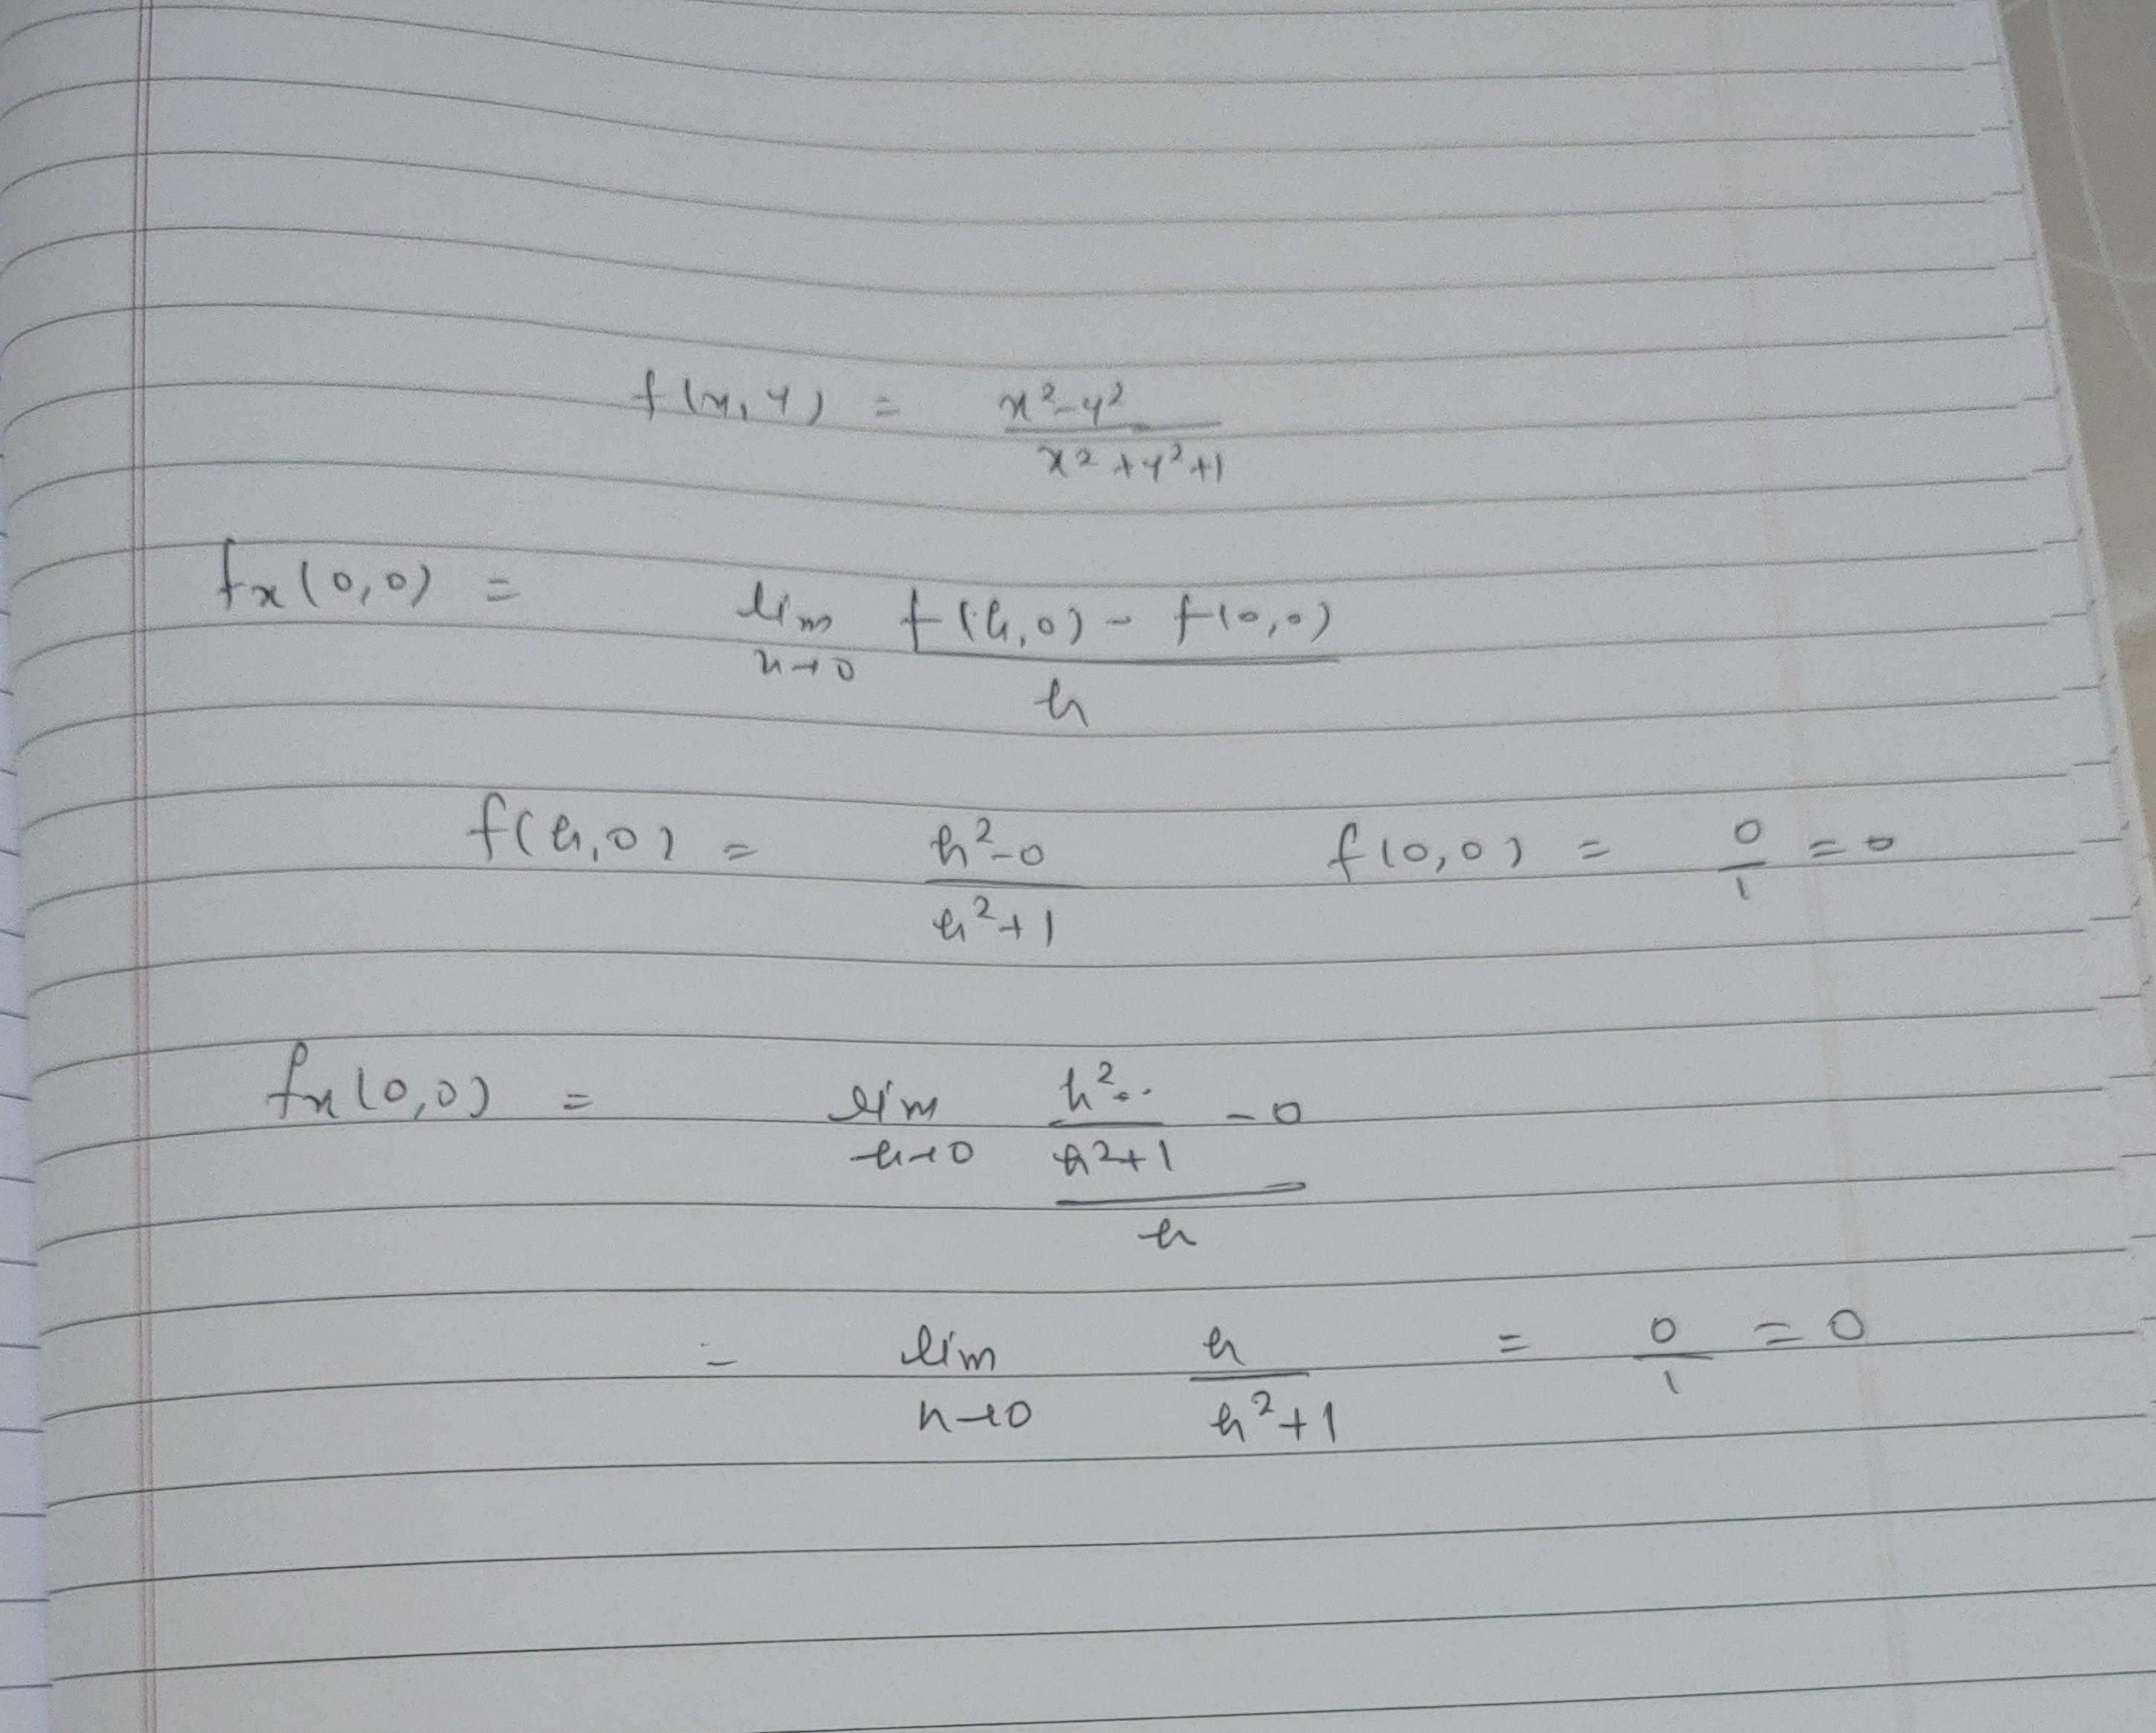 f(x,y) = x²-y² / x²+y²+1
fx(0,0) = lim h→0 f(h,0) - f(0,0) / h
f(h,0) = h²-0 / h²+1 f(0,0) = 0/1 = 0
fx(0,0) = lim h→0 h² / h²+1 - 0 / h
= lim h→0 h / h²+1 = 0/1 = 0